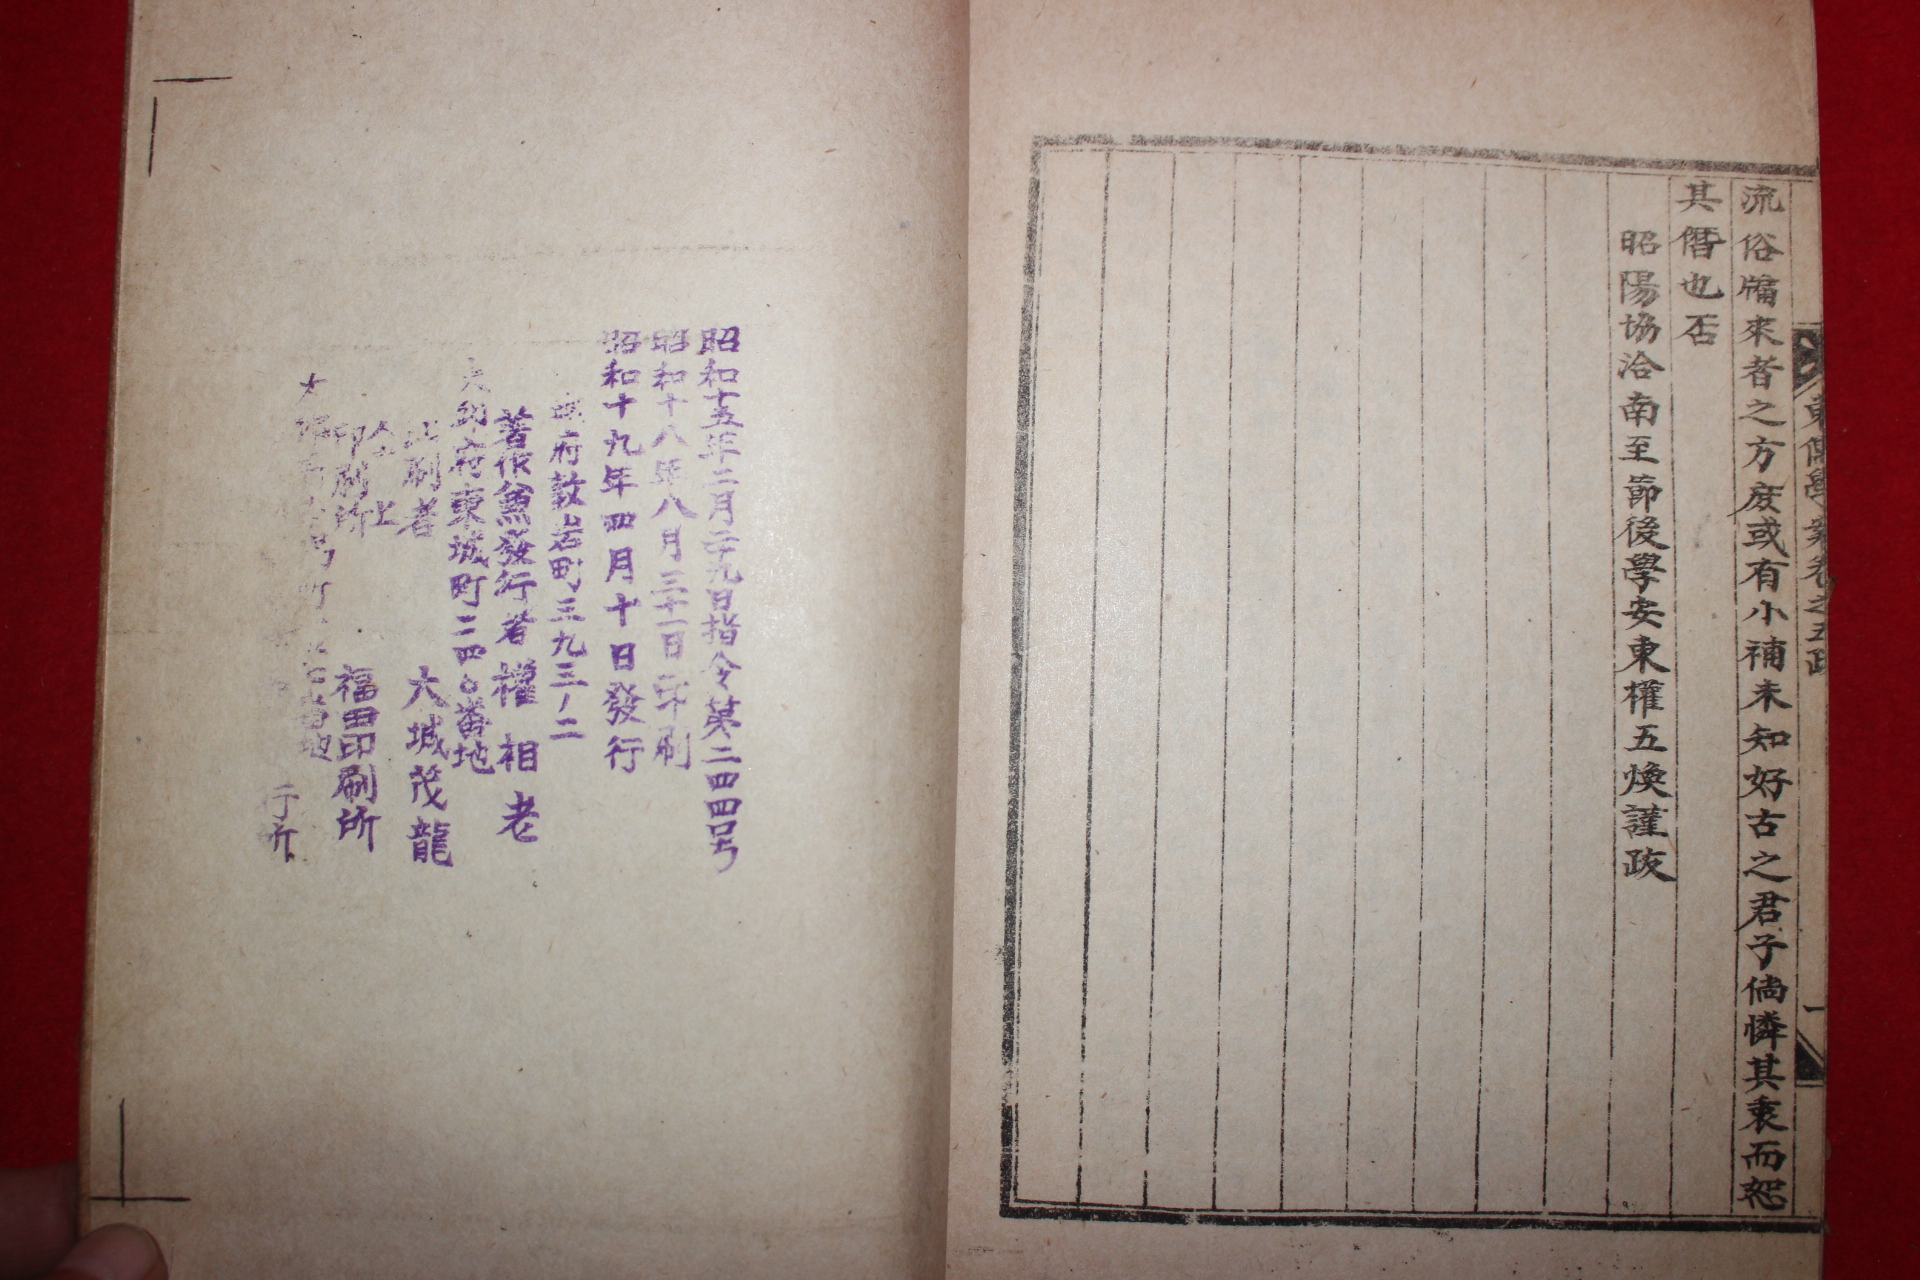 東儒學案卷之五跋
一
流俗牖來者之方庶或有小補未知好古之君子倘憐其衷而恕
其僭也否
昭陽協洽南至節後學安東權五煥謹跋
昭和十五年二月二十九日指令第二四四号
昭和十八年八月三十一日印刷
昭和十九年四月十日發行
府敦岩町三九三ノ二
著作兼發行者 權相老
大邱府東城町二四〇番地
印刷者 大城茂龍
仝上
印刷所 福田印刷所
町 番地
行所